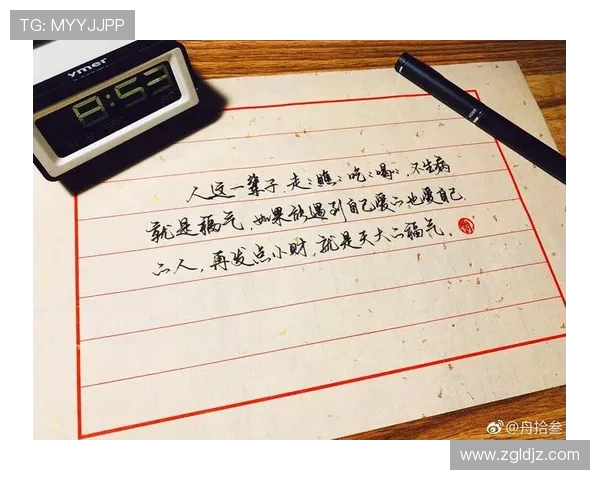 TG: MYYJJPP
ymer
9:53
人这一辈子,走走瞧瞧吃吃喝喝,不生病
就是福气,如果能遇到自己爱的也爱自己
的人,再发点小财,就是天大的福气。
@舟拾叁
www.zgldjz.com